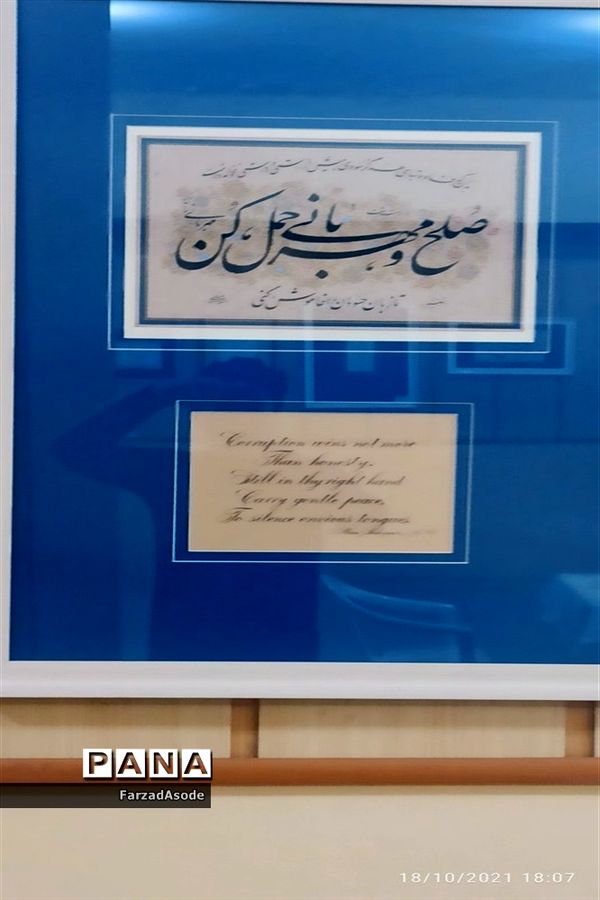 صلح و مهربانی حمل کن
تا زبان حسودان را خاموش کنی
Corruption wins not more
Than honesty.
Still in thy right hand
Carry gentle peace,
To silence envious tongues
PANA
FarzadAsode
18/10/2021 18:07